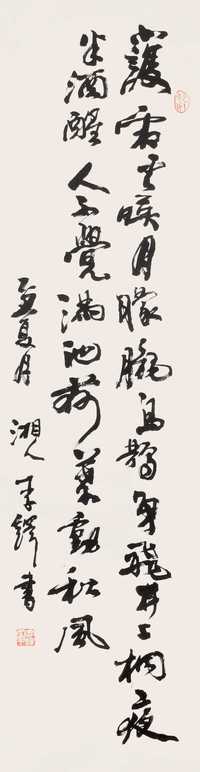 護霜雲映月朦朧烏鵲爭飛井上桐夜
半酒醒人不覺滿池荷葉動秋風
夏月 湘人李鐸書